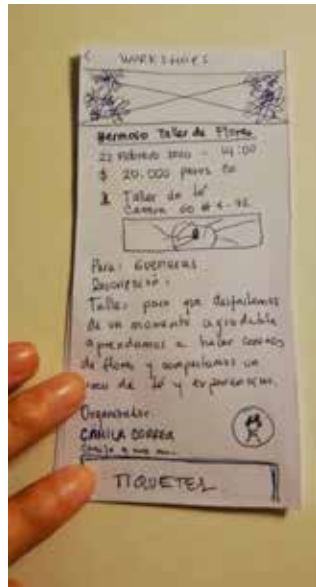 < WORKSHOPS
Hermoso Taller de Flores
22 Febrero 2020 - 14:00
$ 20.000 pesos co
Taller de té
Carrera 60 #
Para: GUERRERAS
Descripción:
Taller para que disfrutemos
de un momento agradable
aprendamos a hacer coronas
de flores y compartamos un
de té y experiencias.
Organizador
CAMILA CORREA
TIQUETES